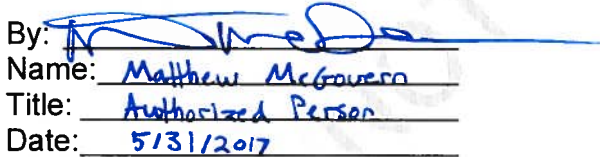 By:
Name: Matthew McGovern
Title: Authorized Person
Date: 5/31/2017